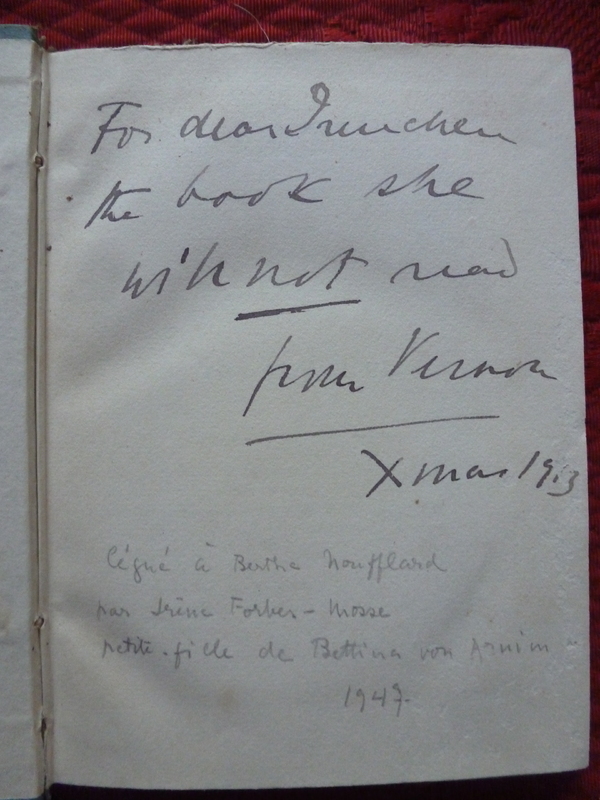 For dear Irenchen
the book she
will not read
from Vernon
Xmas 1913
légué à Berthe Noufflard
par Irène Forbes-Mosse
petite-fille de Bettina von Arnim
1947.